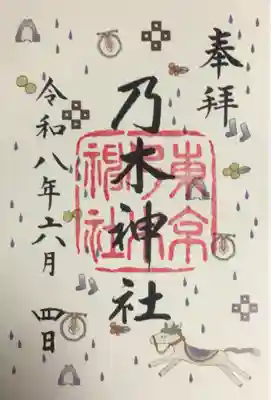 奉拝
乃木神社
東京
乃木
神社
令和八年六月四日